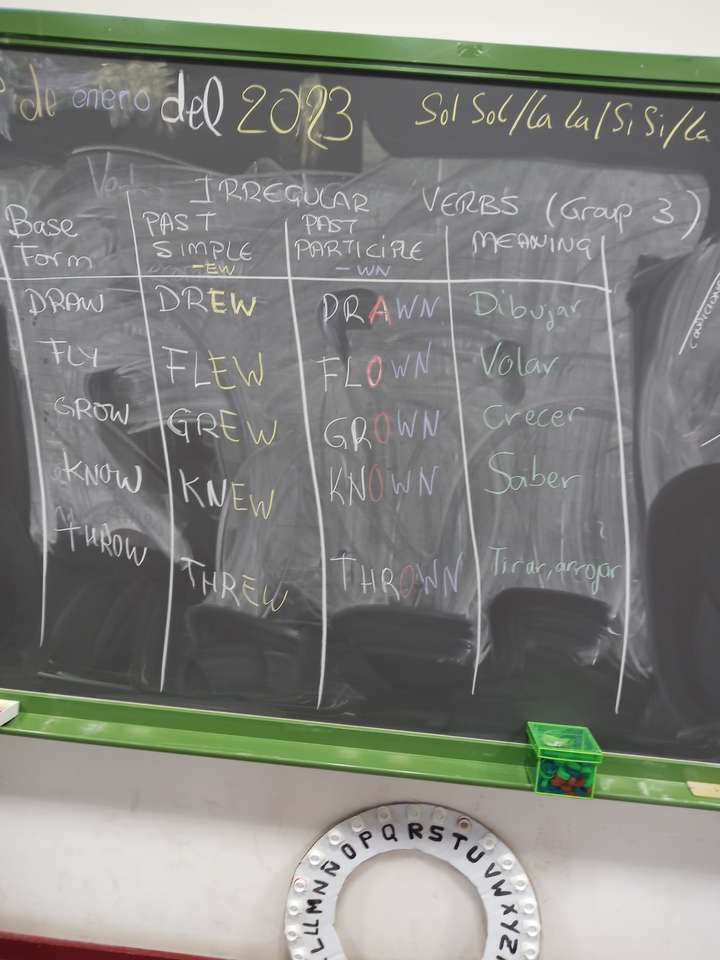 de enero del 2023
Sol Sol/La La/Si Si/La
IRREGULAR VERBS (Group 3)
Base Form
PAST SIMPLE
-EW
PAST PARTICIPLE
-WN
MEANING
DRAW DREW DRAWN Dibujar
FLY FLEW FLOWN Volar
GROW GREW GROWN Crecer
KNOW KNEW KNOWN Saber
THROW THREW THROWN Tirar, arrojar
L LL M N Ñ O P Q R S T U V W X Y Z